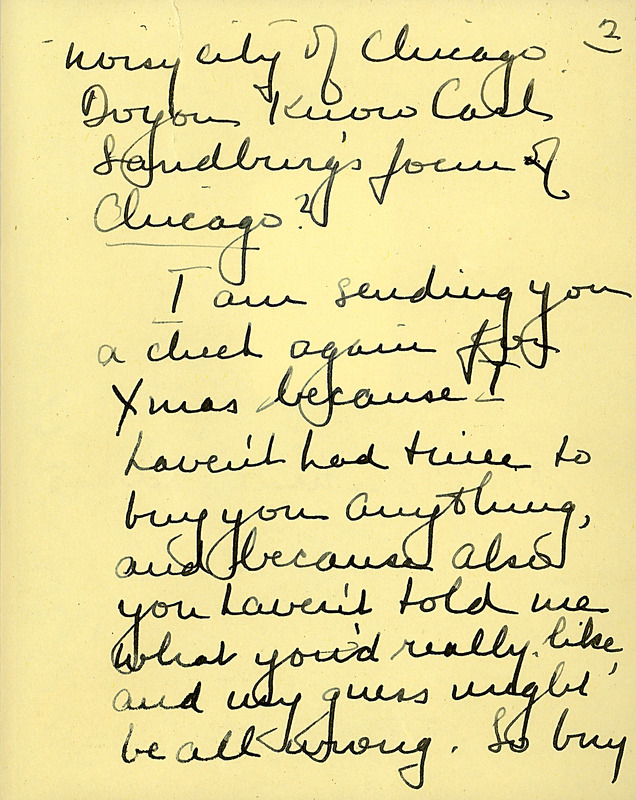 2
noisy city of Chicago
Do you know Carl
Sandburg's poem of
Chicago?
I am sending you
a check again for
Xmas because I
haven't had time to
buy you anything,
and because also
you haven't told me
what you'd really like
and my guess might
be all wrong. So buy